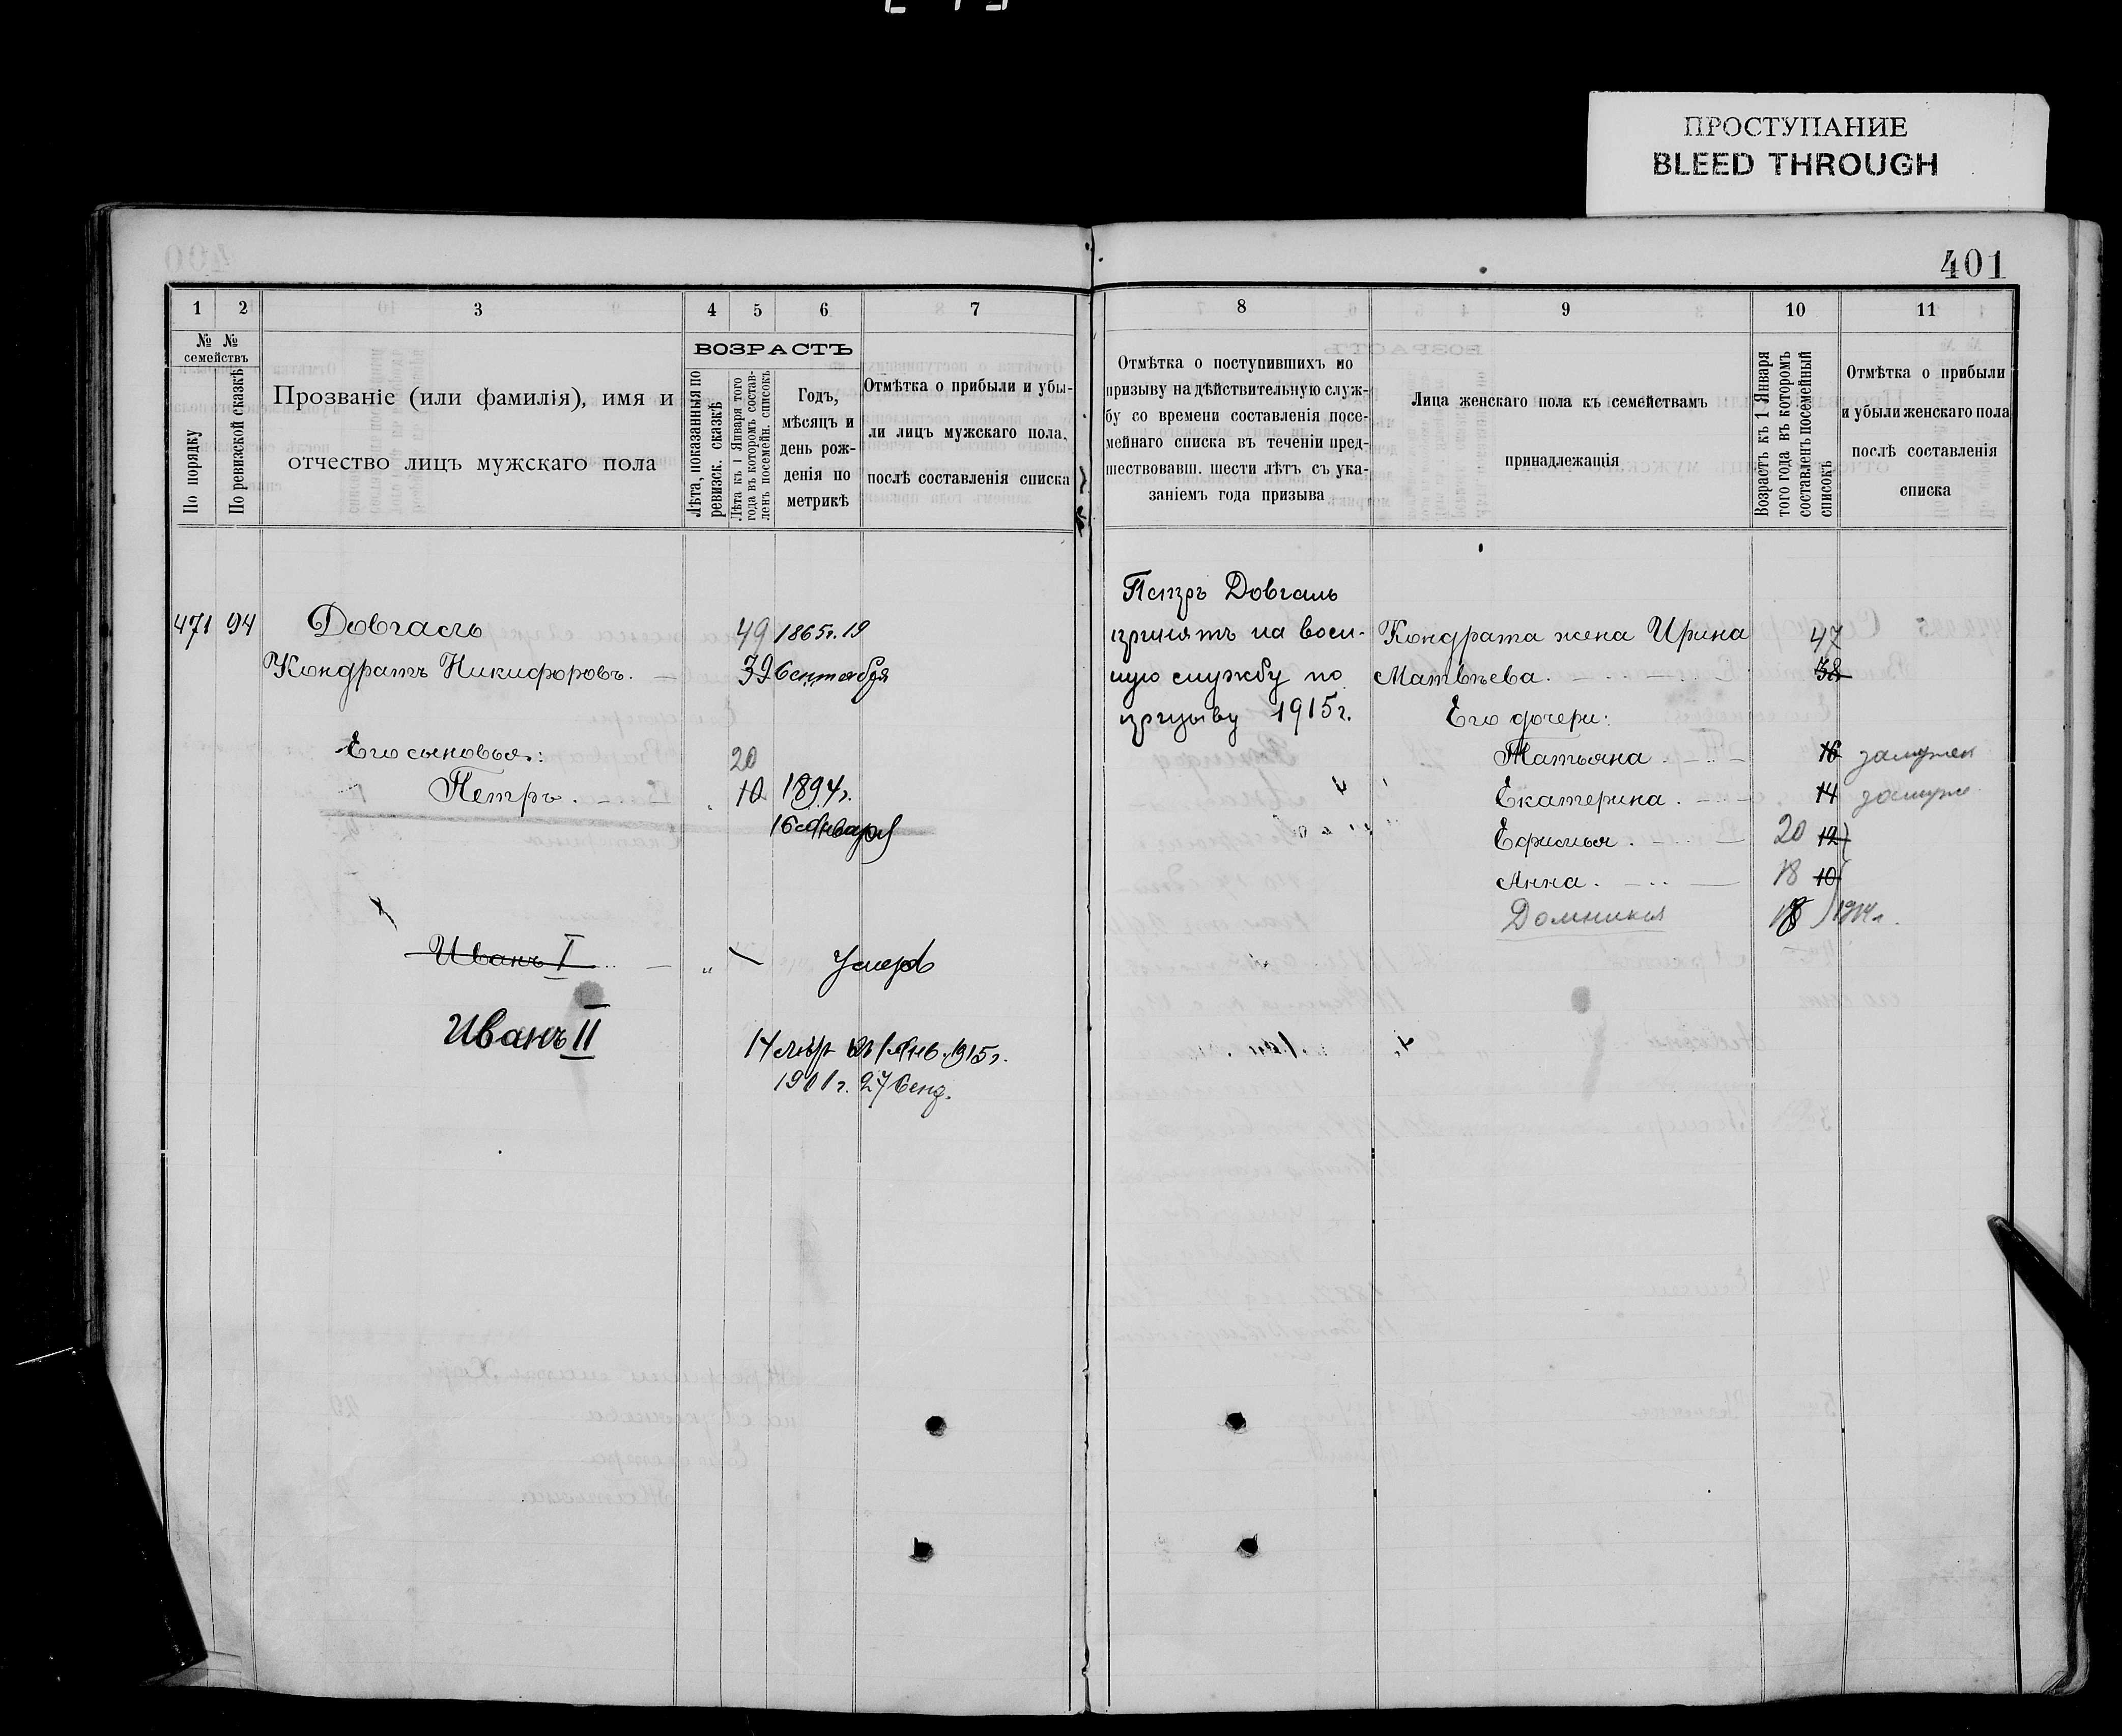 ПРОСТУПАНИЕ
BLEED THROUGH
401
1 2 3 4 5 6 7
№ №
семействъ
По порядку
По ревизской сказкѣ
Прозваніе (или фамилія), имя и
отчество лицъ мужскаго пола
ВОЗРАСТЪ
Лѣта, показанныя по
ревизск. сказкѣ
Лѣта къ 1 Января того
года въ которомъ состав-
ленъ посемейн. списокъ
Годъ,
мѣсяцъ и
день рож-
денія по
метрикѣ
Отмѣтка о прибыли и убы-
ли лицъ мужскаго пола,
послѣ составленія списка
471 94 Довгаль 49 1865г. 19
Кондратъ Никифоровъ. 39 Сентября
Его сыновья: 20
Петръ. 10 1894г.
16 Января
Иванъ I " Умеръ
Иванъ II
14 лѣтъ къ 1 Янв. 1915г.
1901г. 27 Сент.
8 9 10 11
Отмѣтка о поступившихъ по
призыву на дѣйствительную служ-
бу со времени составленія посе-
мейнаго списка въ теченіи пред-
шествовавш. шести лѣтъ съ ука-
заніемъ года призыва
Лица женскаго пола къ семействамъ
принадлежащія
Возрастъ къ 1 Января
того года въ которомъ
составленъ посемейный
списокъ
Отмѣтка о прибыли
и убыли женскаго пола
послѣ составленія
списка
Петръ Довгаль
принятъ на воен-
ную службу по
призыву 1915г.
Кондрата жена Ирина 47
Матвѣева. 38
Его дочери:
Татьяна 16 замужем
Екатерина. 14 замуж
Ефимья. 20 12
Анна. 18 10
Домникія 1914г.